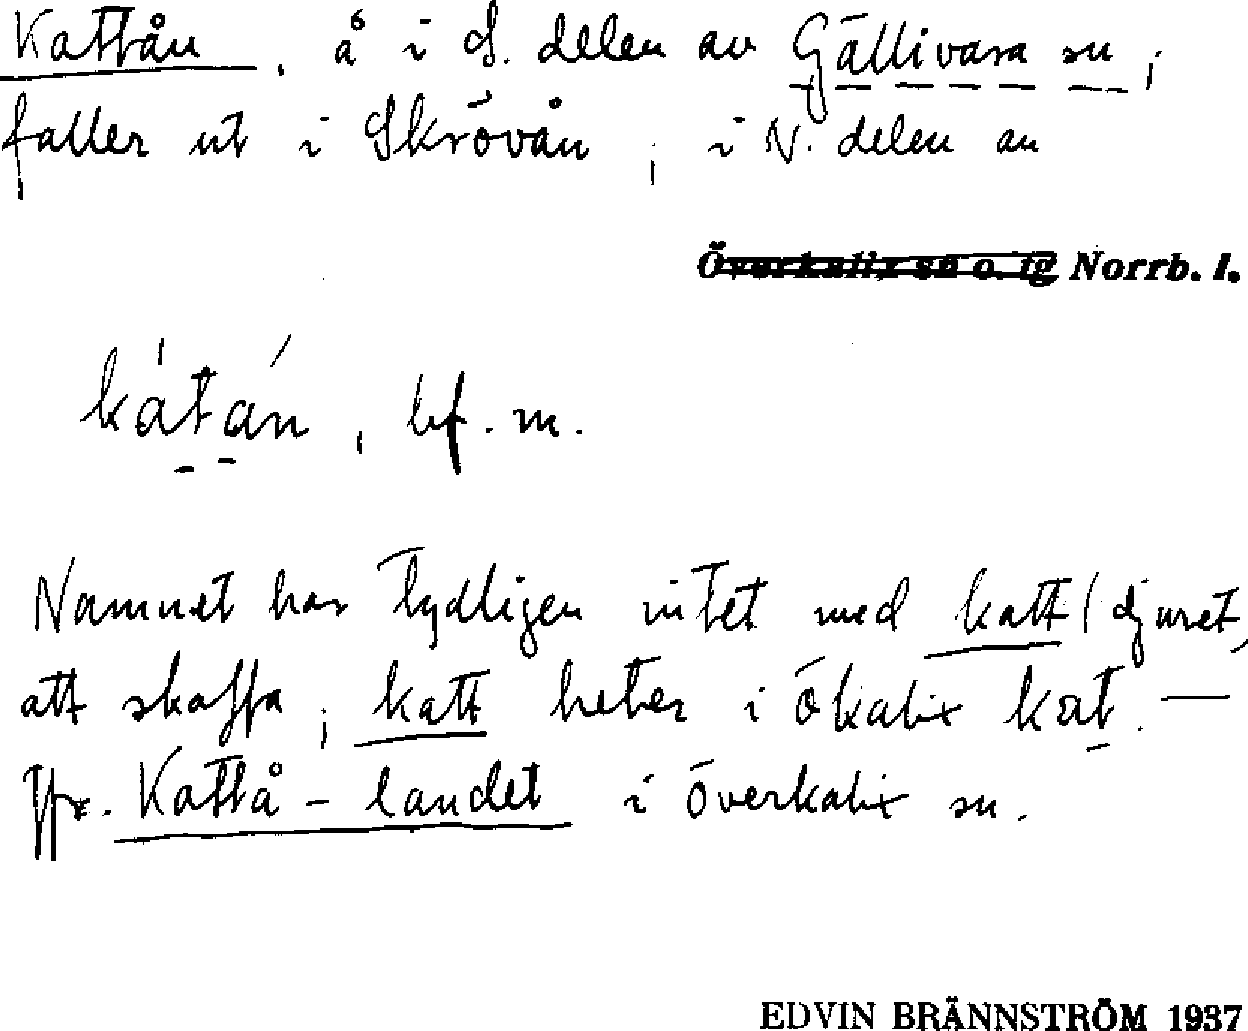 Kattån, å i S. delen av Gällivara sn,
faller ut i Skrövån, i N. delen av
Överkalix sn o. tg Norrb. l.
kátán, bf. m.
Namnet har tydligen intet med katt (djuret,
att skaffa, katt heter i Ökalix kat. —
Jfr. Kattå-landet i Överkalix sn.
EDVIN BRÄNNSTRÖM 1937